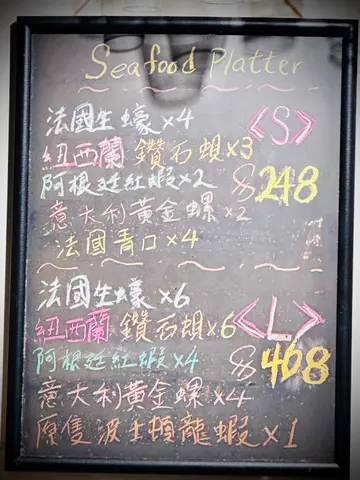 Seafood Platter
法國生蠔×4
<S>
紐西蘭 鑽石蜆×3
阿根廷紅蝦×2 $248
意大利黃金螺×2
法國青口×4
法國生蠔×6
<L>
紐西蘭 鑽石蜆×6
阿根廷紅蝦×4 $468
意大利黃金螺×4
原隻波士頓龍蝦×1